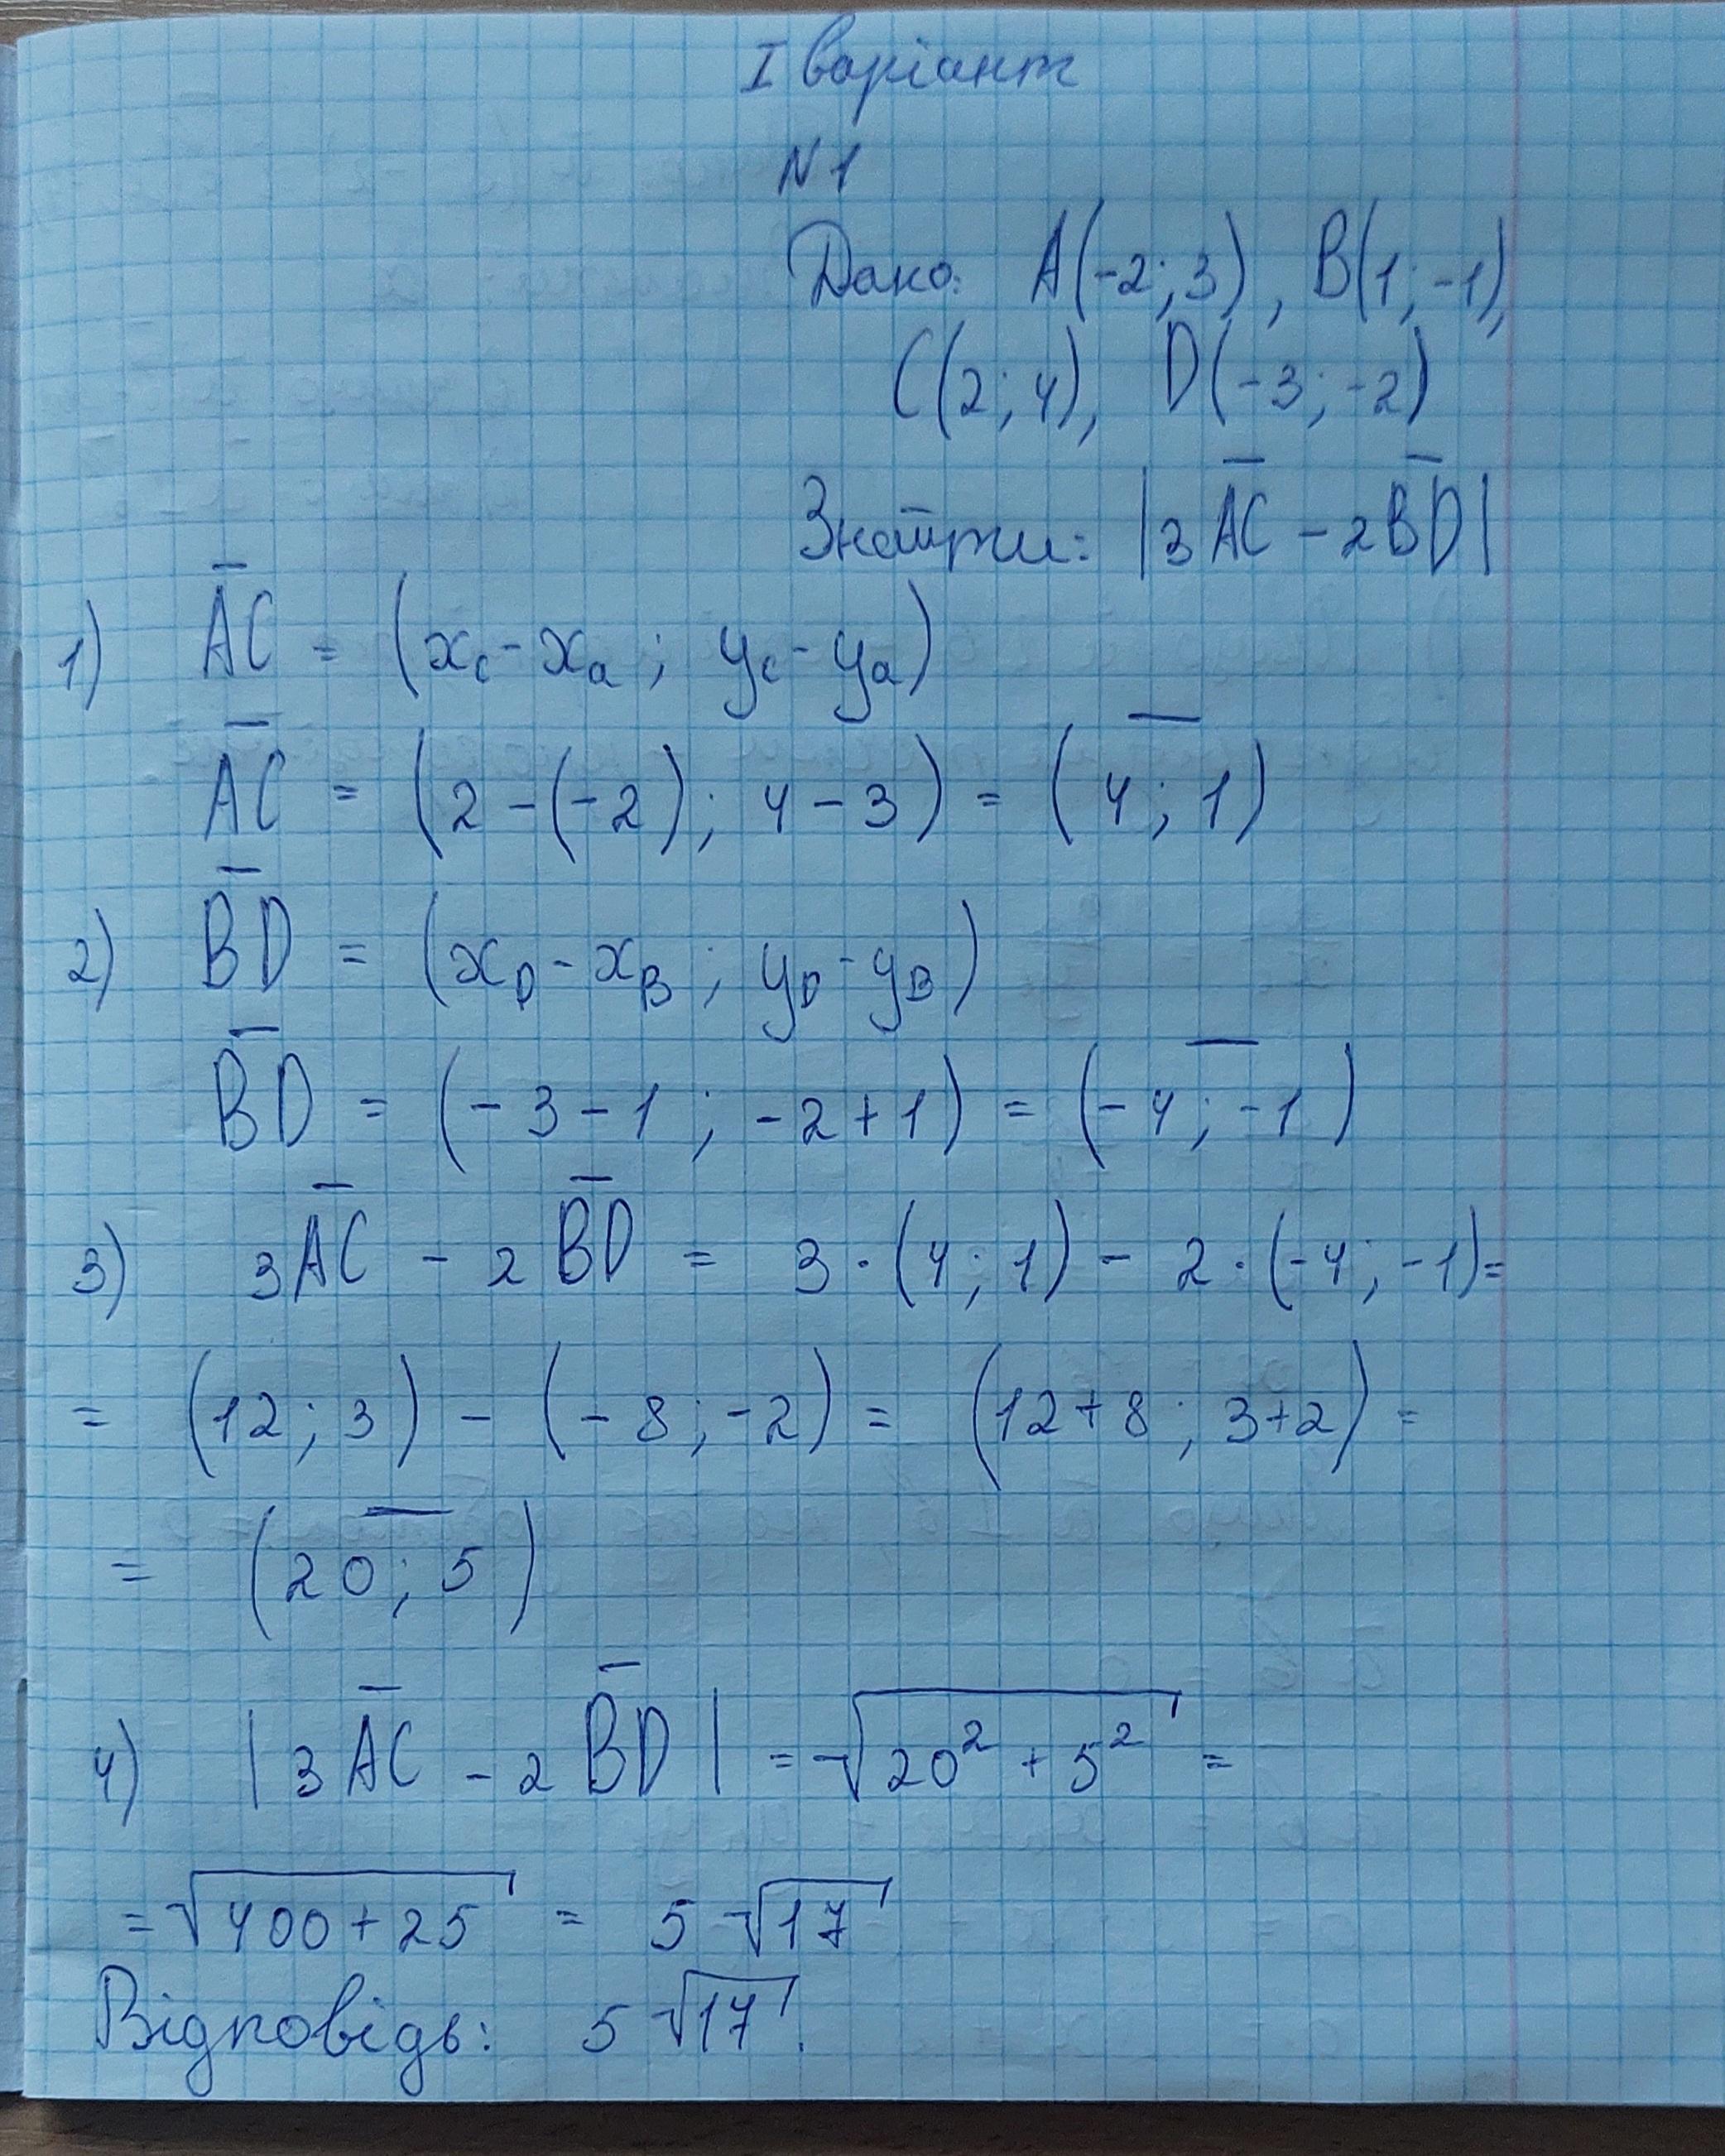 I варіант
N 1
Дано: A(-2; 3), B(1; -1),
C(2; 4), D(-3; -2)
Знайти: |3A̅C̅ - 2B̅D̅|
1) A̅C̅ = (x_c - x_a ; y_c - y_a)
A̅C̅ = (2 - (-2); 4 - 3) = (4; 1)
2) B̅D̅ = (x_D - x_B ; y_D - y_B)
B̅D̅ = (-3 - 1 ; -2 + 1) = (-4; -1)
3) 3A̅C̅ - 2B̅D̅ = 3 · (4; 1) - 2 · (-4; -1) =
= (12; 3) - (-8; -2) = (12 + 8; 3 + 2) =
= (20; 5)
4) |3A̅C̅ - 2B̅D̅| = √(20² + 5²) =
= √(400 + 25) = 5√17
Відповідь: 5√17.